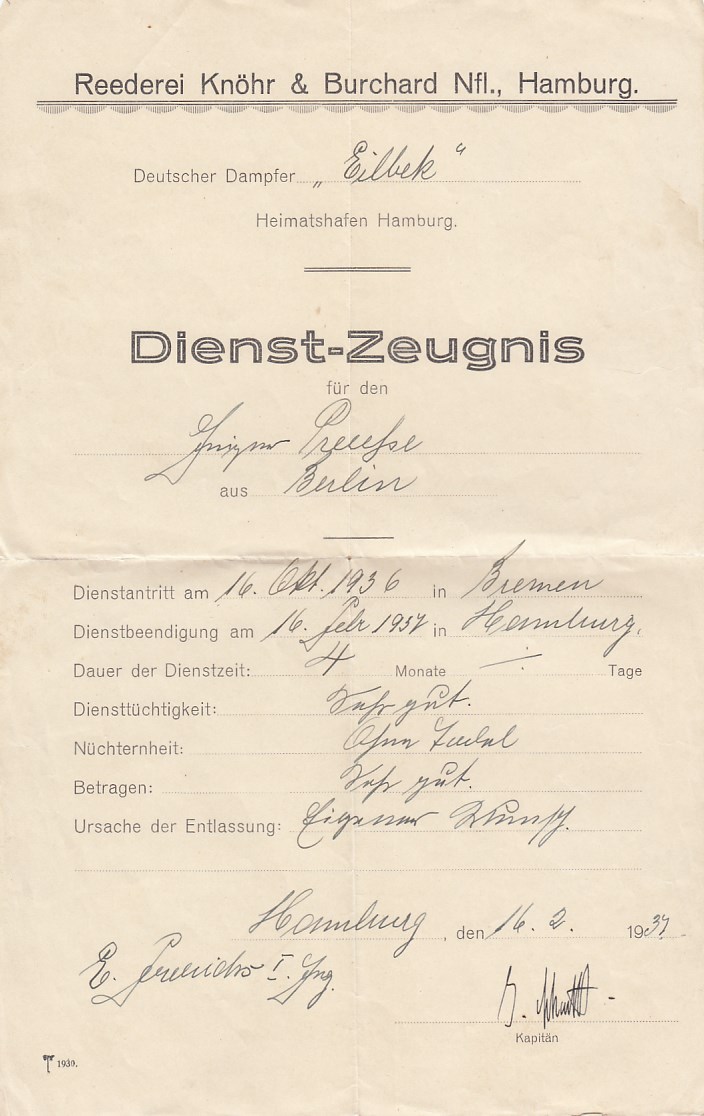 Reederei Knöhr & Burchard Nfl., Hamburg.
Deutscher Dampfer „Eilbek“
Heimatshafen Hamburg.
Dienst-Zeugnis
für den
Preuße
aus Berlin
Dienstantritt am 16. Okt. 1936 in Bremen
Dienstbeendigung am 16. Febr 1937 in Hamburg.
Dauer der Dienstzeit: 4 Monate ÷ Tage
Diensttüchtigkeit: Sehr gut.
Nüchternheit: Ohne Tadel
Betragen: Sehr gut.
Ursache der Entlassung: Eigener Wunsch.
Hamburg, den 16. 2. 1937
E. I. Ing.
Kapitän
1930.